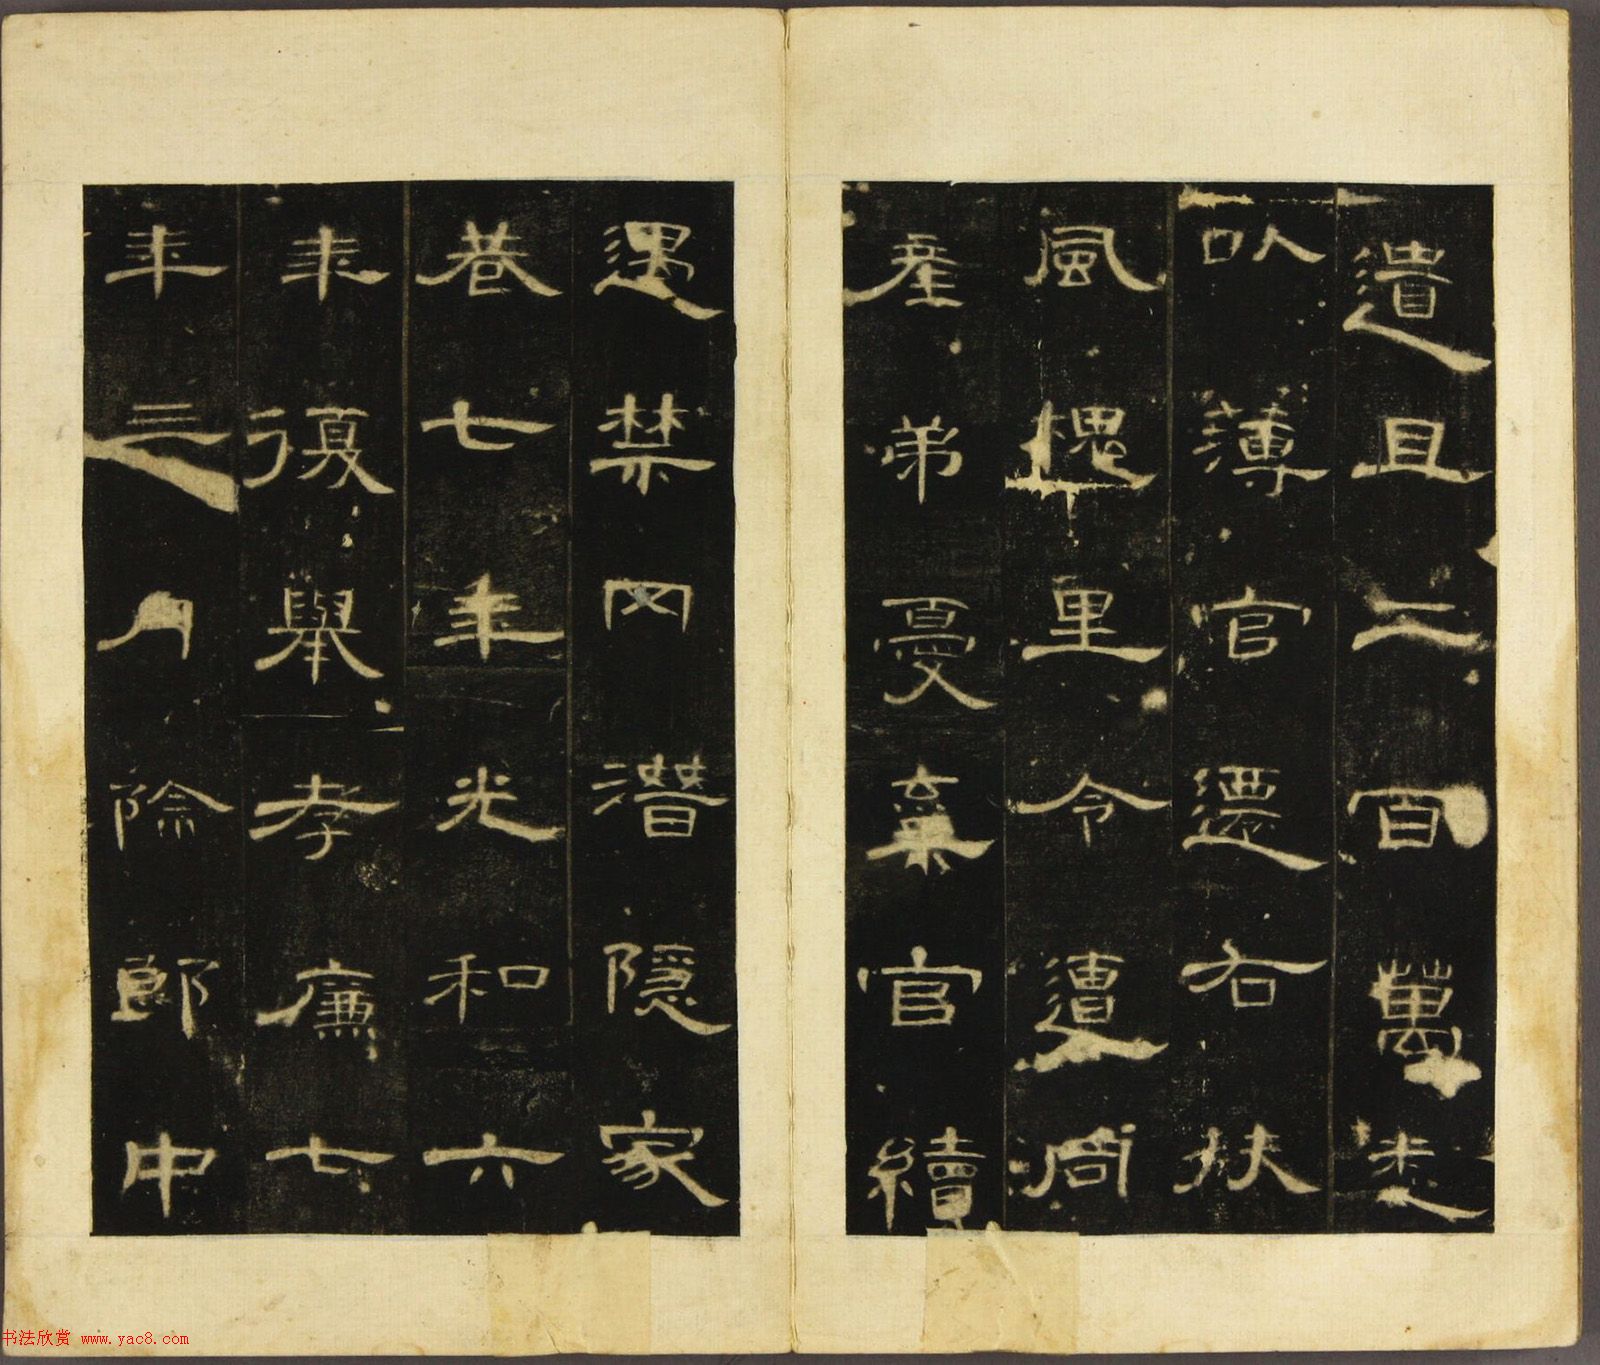 遺且二百萬悉
以薄官遷右扶
風槐里令遭同
產弟憂棄官續
遇禁网潛隱家
巷七年光和六
年復舉孝廉七
年三月除郎中
书法欣赏 www.yac8.com